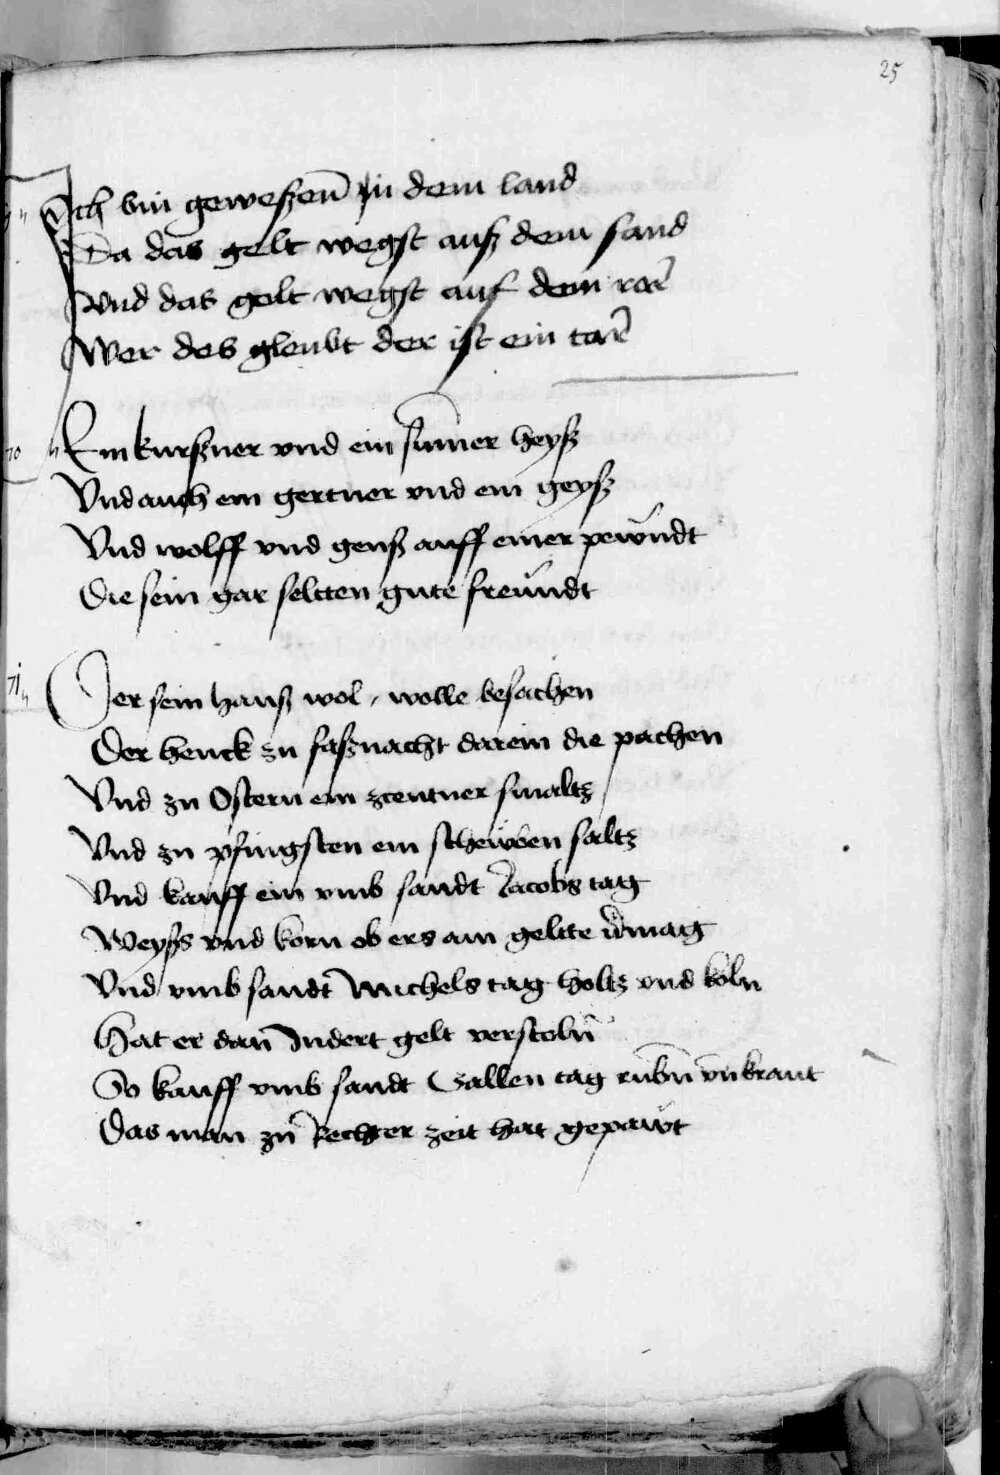 25
Ich bin geweßen̄ in dem land
Da das gelt wegst auß dem sand
Vnd das gelt wegst auf dem rar̄
Wer des gleubt der ist ein tar̄
70
Ein kurßner vnd ein sum̄er heyß
Vnd auch ein gertner vnd ein geyß
Vnd wolff vnd genß auff einer pewndt
Die sein gar seltten gute freundt
71
Wer sein hauß wol, wolle besachen
Der henck zu faßnacht darein die pachen
Vnd zu Ostern ein zcentner smaltz
Vnd zu pfingsten ein scheuben saltz
Vnd kauff ein vmb sandt Jacobs tag
Weyß vnd korn ob ers am geltte vermag
Vnd vmb sandt Michels tag holtz vnd koln
Hat er dan̄ Indert gelt verstoln̄
So kauff vmb sandt Gallen tag rubn̄ vn̄ kraut
Das man zu Rechter zeit hat gepawt